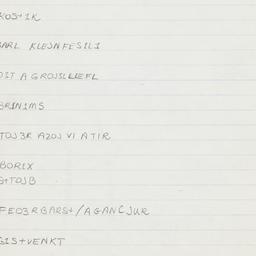 KOS+1K
ARL KLEJNFESILI
OIT A GROJSLLEEFL
BRINIMS
TOJ3R AZOJ VI A TIR
BORIX
S+TOJB
FEO3RBARS+/AGANCJUR
GIS+VENKT